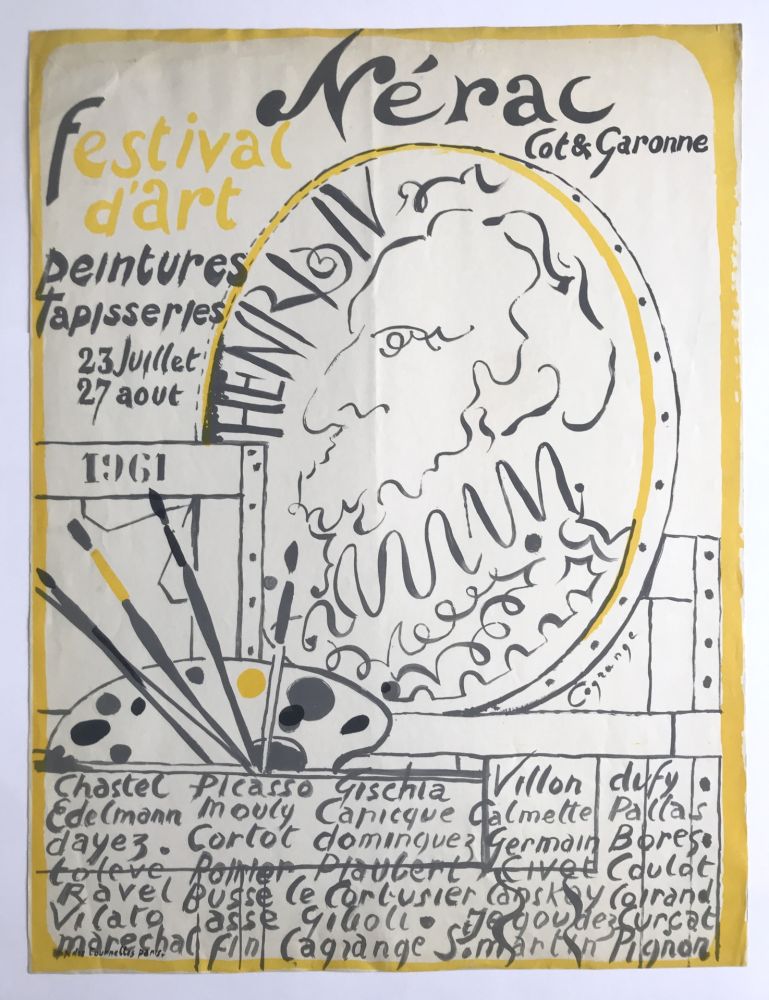 Nérac
Lot & Garonne
festival
d'art
peintures
tapisseries
23 Juillet
27 aout
HENRI IV
1961
Lagrange
Chastel Picasso Gischia Villon dufy
Edelmann Mouly Calmette Pallas
dayez. Cortot dominguez Germain Bores.
Civet Coulot
Ravel Busse Le Corbusier Lanskoy Coirand
Vilato asse Gilioli Lurçat
marechal fin Lagrange St. martin Pignon
tournelles paris.